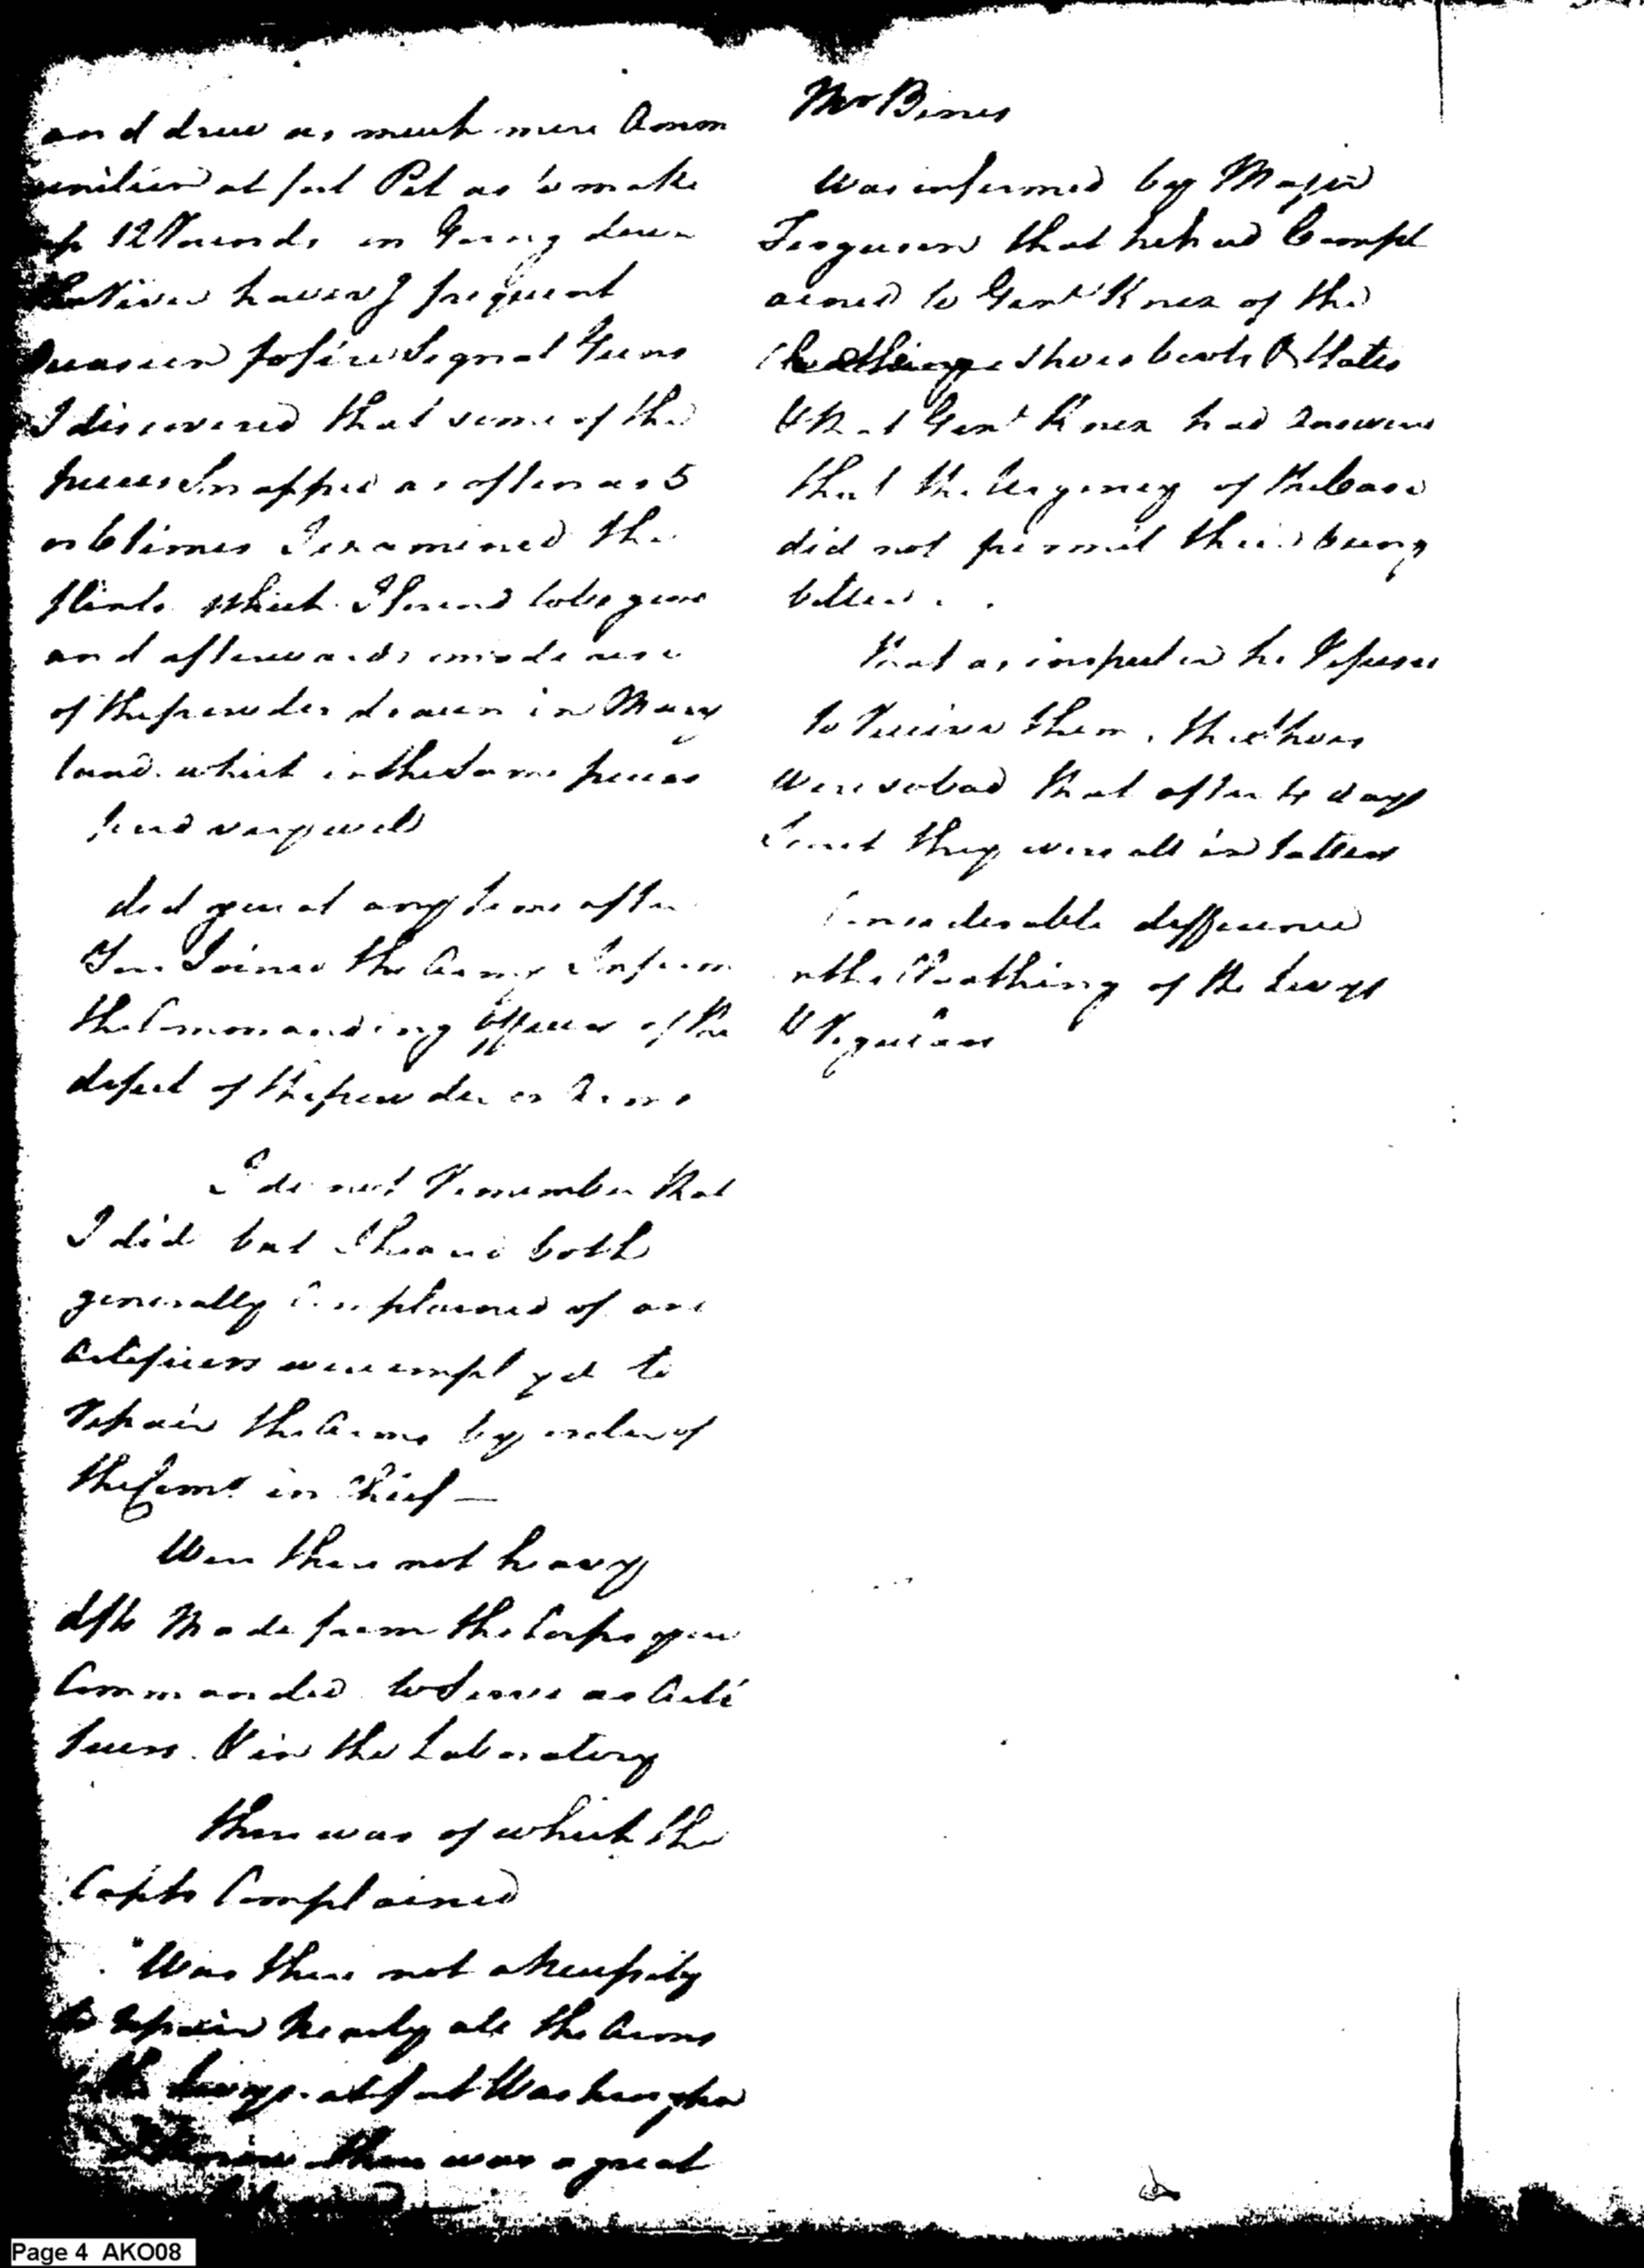 and drew as much more Amm
unition at fort Pit as to make
up 12 Rounds, in Going down
the River having frequent
occasion to fire Signal Guns
I discovered that some of the
pieces Snapped as often as 5
or 6 times I examined the
flints which I found to be good
and afterwards made use
of the powder drawn in Mary
land. which in the Same pieces
fired very well
did you at any time after
You Joined the Army Inform
the Commanding Officer of the
defect of the powder or Arms
I do not Remember that
I did but I heard both
generally Complained of and
Artificers were employed to
Repair the Arms by order of
the Comr in Chief —
Were there not heavy
dfts Made from the Corps you
Commanded to Serve as Arti
ficers & in the Laboratory
there was of which the
Capts Complained
Was there not a Necessity
to repair Nearly all the Arms
the Levys at fort Washington
there was a great
Mr Bines
Was informed by Major
Ferguson that he had Compl
ained to Genl Knox of the
Cloathing Shoes boots & Hatts
& that Genl Knox had Answered
that the Urgency of the Case
did not permit their being
better.
that as inspector he Refused
to Receive them, the Shoes
were so bad that after 4 days
they were all in tatters
Considerable difference
in the Cloathing of the Levys
& Regulars
Page 4 AKO08